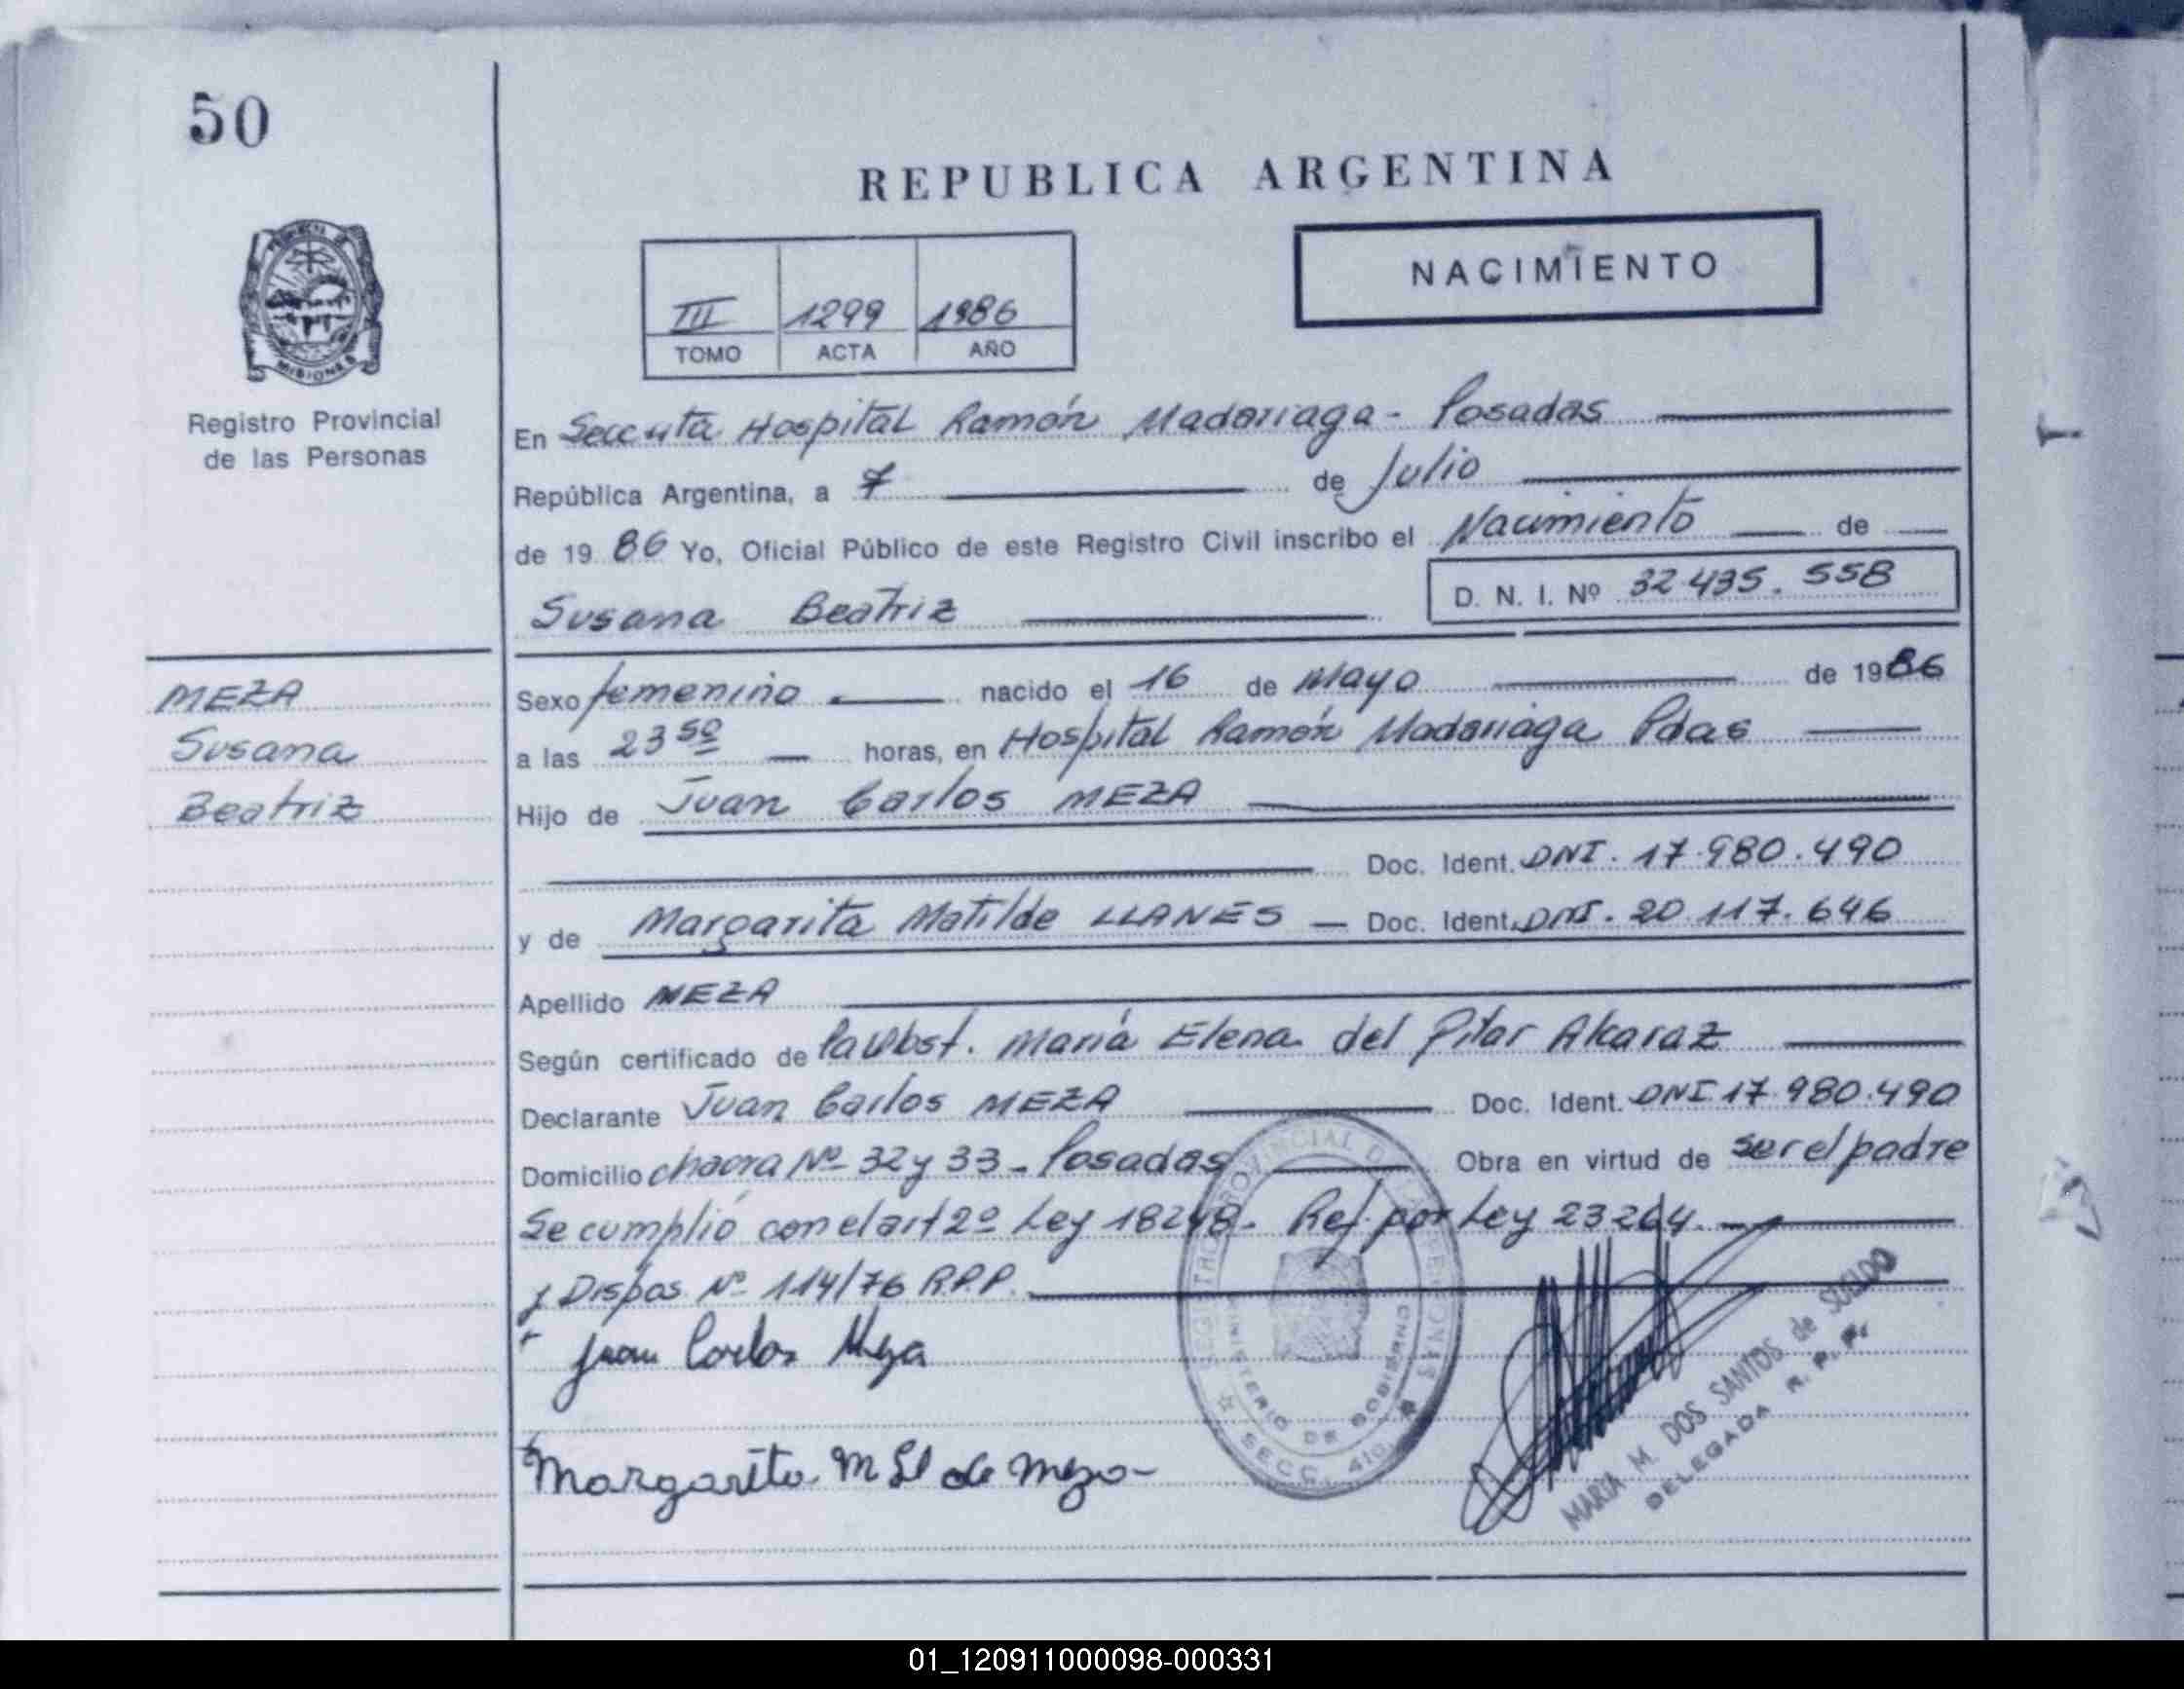 50
REPUBLICA ARGENTINA
PROVINCIA DE
MISIONES
Registro Provincial
de las Personas
III 1299 1986
TOMO ACTA AÑO
NACIMIENTO
En Secc 4ta Hospital Ramón Madariaga - Posadas
República Argentina, a 7 de Julio
de 19 86 Yo, Oficial Público de este Registro Civil inscribo el Nacimiento de
Susana Beatriz D. N. I. Nº 32.435.558
MEZA
Susana
Beatriz
Sexo femenino nacido el 16 de Mayo de 1986
a las 23 50 horas, en Hospital Ramón Madariaga Pdas
Hijo de Juan Carlos MEZA
Doc. Ident. DNI. 17.980.490
y de Margarita Matilde LLANES - Doc. Ident. DNI. 20.117.646
Apellido MEZA
Según certificado de la Obst. María Elena del Pilar Alcaraz
Declarante Juan Carlos MEZA Doc. Ident. DNI 17.980.490
Domicilio chacra Nº 32 y 33 - Posadas Obra en virtud de ser el padre
Se cumplió con el art 2º Ley 18248. Ref. por Ley 23264.
y Dispos. Nº 114/76 R.P.P.
Juan Carlos Meza
Margarita M Ll de Meza -
REGISTRO PROVINCIAL DE LAS PERSONAS
MINISTERIO DE GOBIERNO
SECC. 4ta.
MARIA M. DOS SANTOS de SUELDO
DELEGADA R. P. P.
01_120911000098-000331